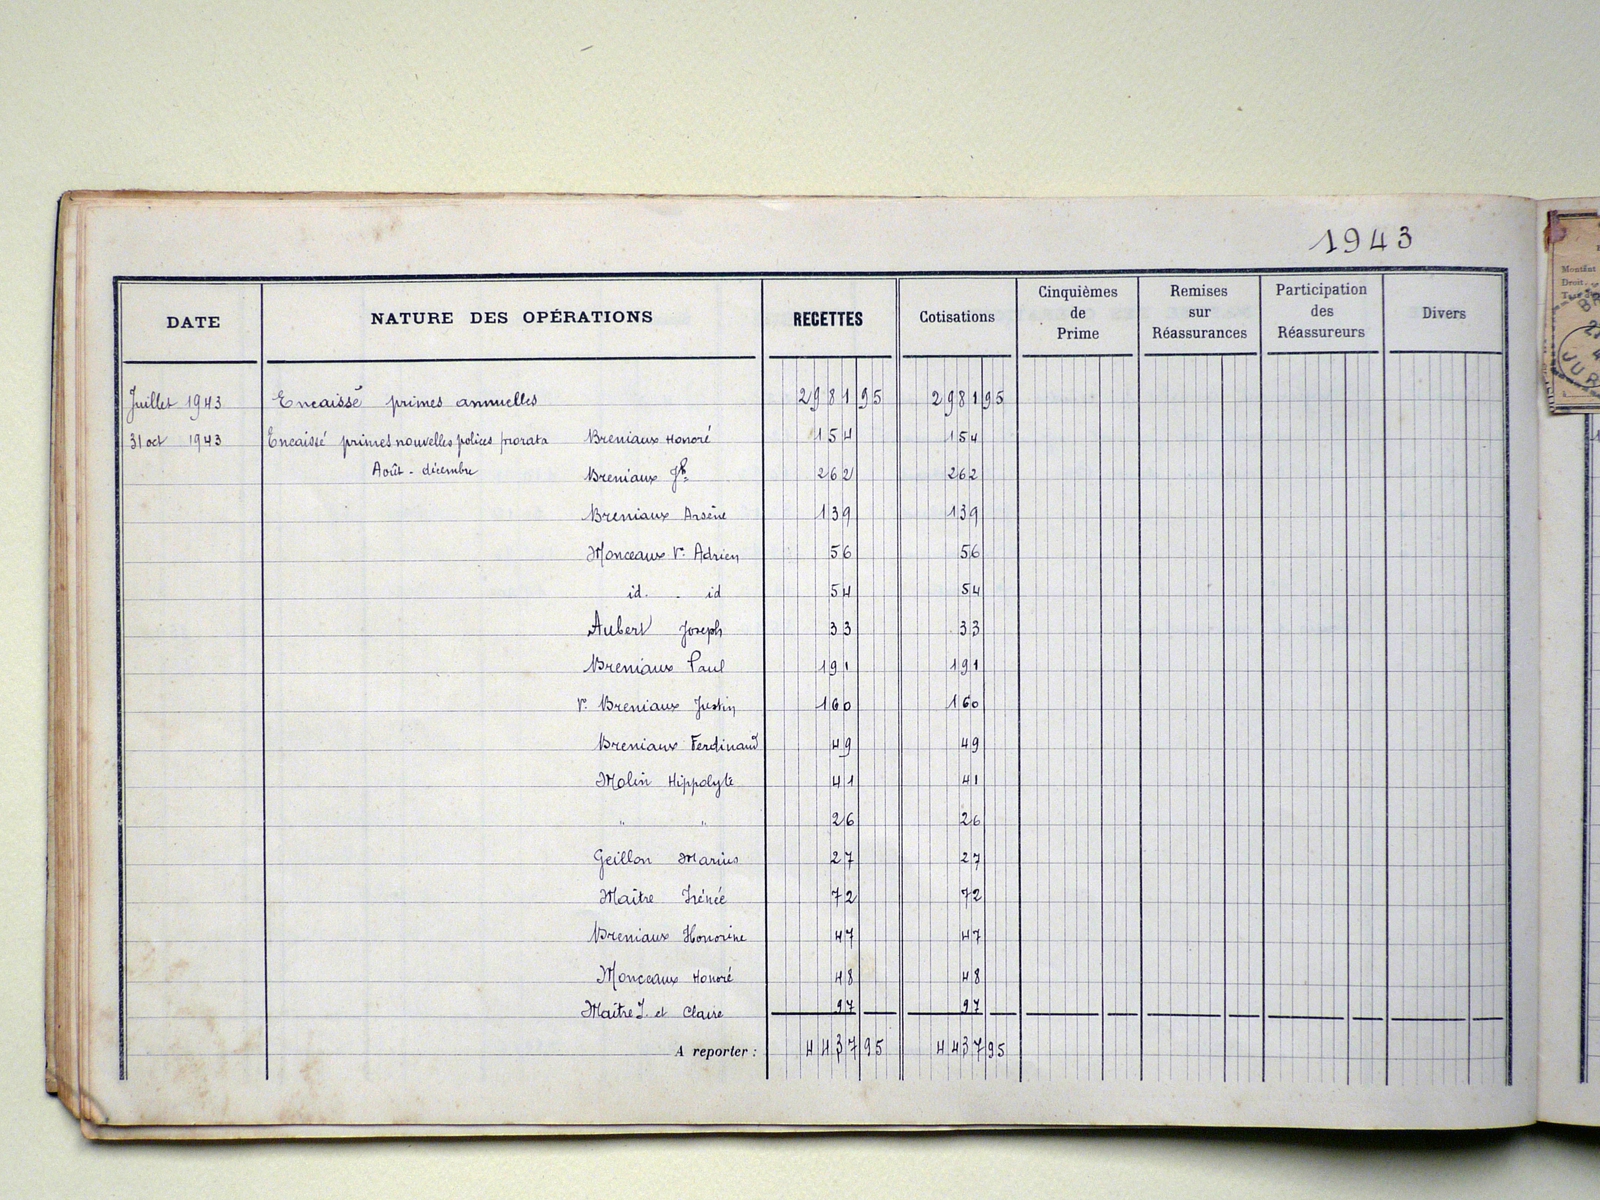 1943
DATE NATURE DES OPÉRATIONS RECETTES Cotisations Cinquièmes de Prime Remises sur Réassurances Participation des Réassureurs Divers
Juillet 1943 Encaissé primes annuelles 2981 95 2981 95
31 oct 1943 Encaissé primes nouvelles polices prorata Breniaux Honoré 154 154
Août - décembre Breniaux Jh 262 262
Breniaux Arsène 139 139
Monceaux Vᵉ Adrien 56 56
id. - id 54 54
Aubert Joseph 33 33
Breniaux Paul 191 191
Vᵉ Breniaux Justin 160 160
Breniaux Ferdinand 49 49
Molin Hippolyte 41 41
" " 26 26
Geillon Marius 27 27
Maître Irénée 72 72
Breniaux Honorine 47 47
Monceaux Honoré 48 48
Maître J. et Claire 97 97
A reporter : 4437 95 4437 95
Montant
Droit
JUR